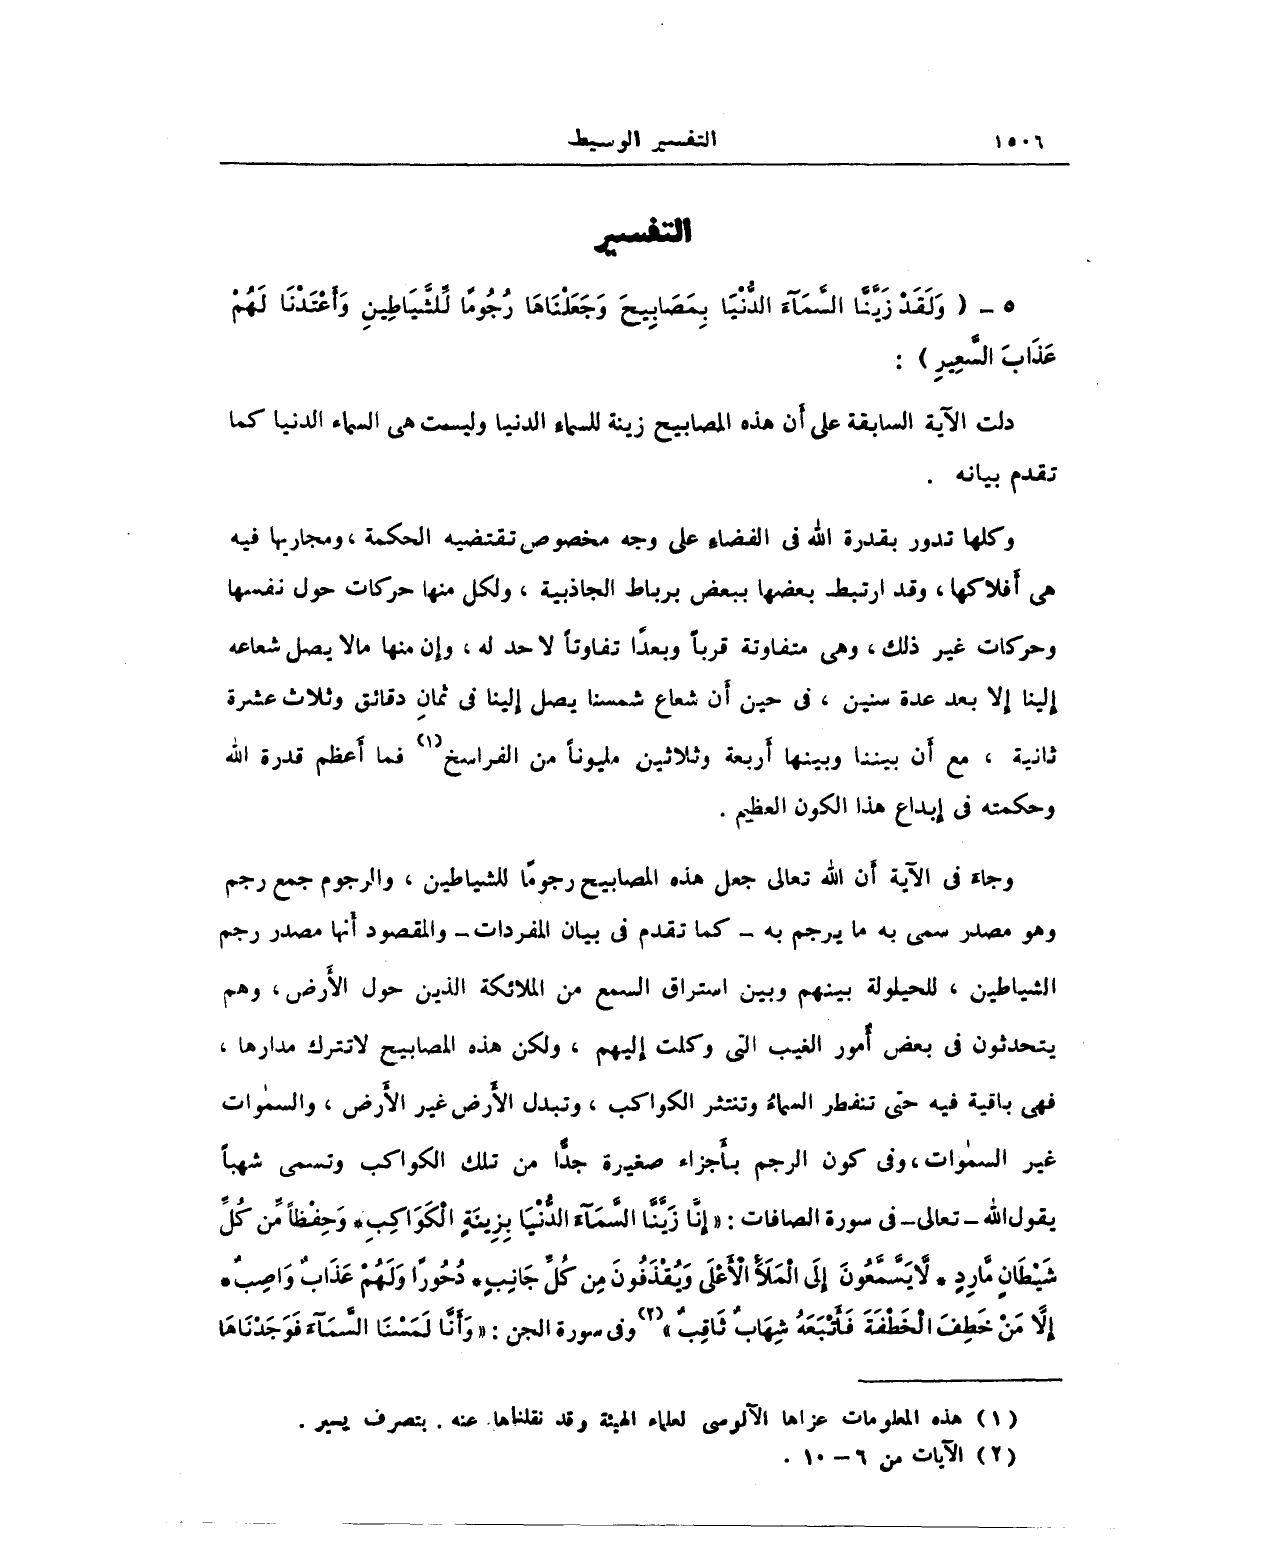 ١٥٠٦ التفسير الوسيط
التفسير
٥ – ( وَلَقَدْ زَيَّنَّا السَّمَآءَ الدُّنْيَا بِمَصَابِيحَ وَجَعَلْنَاهَا رُجُومًا لِّلشَّيَاطِينِ وَأَعْتَدْنَا لَهُمْ
عَذَابَ السَّعِيرِ ) :
دلت الآية السابقة على أن هذه المصابيح زينة للسماء الدنيا وليست هى السماء الدنيا كما
تقدم بيانه .
وكلها تدور بقدرة الله فى الفضاء على وجه مخصوص تقتضيه الحكمة ، ومجاريها فيه
هى أفلاكها ، وقد ارتبط بعضها ببعض برباط الجاذبية ، ولكل منها حركات حول نفسها
وحركات غير ذلك ، وهى متفاوتة قرباً وبعدًا تفاوتاً لا حد له ، وإن منها مالا يصل شعاعه
إلينا إلا بعد عدة سنين ، فى حين أن شعاع شمسنا يصل إلينا فى ثمانِ دقائق وثلاث عشرة
ثانية ، مع أن بيننا وبينها أربعة وثلاثين مليوناً من الفراسخ(١) فما أعظم قدرة الله
وحكمته فى إبداع هذا الكون العظيم .
وجاء فى الآية أن الله تعالى جعل هذه المصابيح رجومًا للشياطين ، والرجوم جمع رجم
وهو مصدر سمى به ما يرجم به – كما تقدم فى بيان المفردات – والمقصود أنها مصدر رجم
الشياطين ، للحيلولة بينهم وبين استراق السمع من الملائكة الذين حول الأَرض ، وهم
يتحدثون فى بعض أُمور الغيب التى وكلت إليهم ، ولكن هذه المصابيح لاتترك مدارها ،
فهى باقية فيه حتى تنفطر السماءُ وتنتثر الكواكب ، وتبدل الأَرض غير الأَرض ، والسمٰوات
غير السمٰوات ، وفى كون الرجم بأَجزاء صغيرة جدًّا من تلك الكواكب وتسمى شهباً
يقول الله – تعالى – فى سورة الصافات : « إِنَّا زَيَّنَّا السَّمَآءَ الدُّنْيَا بِزِينَةٍ الْكَوَاكِبِ * وَحِفْظاً مِّن كُلِّ
شَيْطَانٍ مَّارِدٍ * لَّايَسَّمَّعُونَ إِلَى الْمَلَأَ الْأَعْلَى وَيُقْذَفُونَ مِن كُلِّ جَانِبٍ * دُحُورًا وَلَهُمْ عَذَابٌ وَاصِبٌ *
إِلَّا مَنْ خَطِفَ الْخَطْفَةَ فَأَتْبَعَهُ شِهَابٌ ثَاقِبٌ »(٢) وفى سورة الجن : « وَأَنَّا لَمَسْنَا السَّمَآءَ فَوَجَدْنَاهَا
(١) هذه المعلومات عزاها الآلوسى لعلماء الهيئة وقد نقلناها عنه . بتصرف يسير .
(٢) الآيات من ٦ – ١٠ .